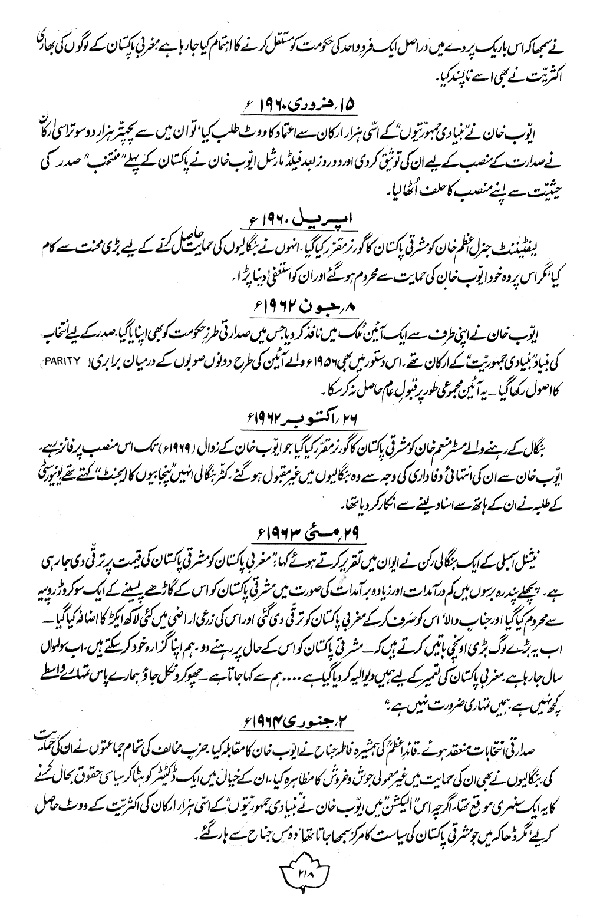 نے سمجھا کہ اس باریک پردے میں دراصل ایک فرد واحد کی حکومت کو مستقل کرنے کا اہتمام کیا جا رہا ہے مغربی پاکستان کے لوگوں کی بھاری
اکثریت نے بھی اسے ناپسند کیا۔
۱۵، فروری ۱۹۶۰ء
ایوب خان نے "بنیادی جمہوریتوں" کے اسّی ہزار ارکان سے اعتماد کا ووٹ طلب کیا تو ان میں سے پچھتر ہزار دو سو تراسی ارکان
نے صدارت کے منصب کے لیے ان کی توثیق کر دی اور دو روز بعد فیلڈ مارشل ایوب خان نے پاکستان کے پہلے "منتخب" صدر کی
حیثیت سے اپنے منصب کا حلف اُٹھا لیا۔
اپریل ۱۹۶۰ء
لیفٹیننٹ جنرل اعظم خان کو مشرقی پاکستان کا گورنر مقرر کیا گیا، انہوں نے بنگالیوں کی حمایت حاصل کرنے کے لیے بڑی محنت سے کام
کیا، مگر اس پر وہ خود ایوب خان کی حمایت سے محروم ہو گئے اور ان کو استعفیٰ دینا پڑا۔
۸، جون ۱۹۶۲ء
ایوب خان نے اپنی طرف سے ایک آئین ملک میں نافذ کر دیا جس میں صدارتی طرز حکومت کو بھی اپنایا گیا، صدر کے لیے انتخاب
کی بنیاد "بنیادی جمہوریت" کے ارکان تھے۔ اس دستور میں بھی ۱۹۵۶ء والے آئین کی طرح دونوں صوبوں کے درمیان برابری (PARITY)
کا اصول رکھا گیا۔ یہ آئین مجموعی طور پر قبول عام حاصل نہ کر سکا۔
۲۶، اکتوبر ۱۹۶۲ء
بنگال کے رہنے والے مسٹر منعم خان کو مشرقی پاکستان کا گورنر مقرر کیا گیا جو ایوب خان کے زوال (۱۹۶۹ء) تک اس منصب پر فائز رہے۔
ایوب خان سے ان کی انتہائی وفاداری کی وجہ سے وہ بنگالیوں میں غیر مقبول ہو گئے۔ کٹر بنگالی انہیں "پنجابیوں کا ایجنٹ" کہتے تھے یونیورسٹی
کے طلبہ نے ان کے ہاتھ سے اسناد لینے سے انکار کر دیا تھا۔
۲۹، مئی ۱۹۶۳ء
نیشنل اسمبلی کے ایک بنگالی رکن نے ایوان میں تقریر کرتے ہوئے کہا، "مغربی پاکستان کو مشرقی پاکستان کی قیمت پر ترقی دی جا رہی
ہے۔ پچھلے پندرہ برسوں میں کم درآمدات اور زیادہ برآمدات کی صورت میں مشرقی پاکستان کو اس کے گاڑھے پسینے کے ایک سو کروڑ روپیہ
سے محروم کیا گیا اور جناب والا! اس کو صرف کر کے مغربی پاکستان کو ترقی دی گئی اور اس کی زرعی اراضی میں کئی لاکھ ایکڑ کا اضافہ کیا گیا۔
اب یہ بڑے لوگ بڑی اونچی باتیں کرتے ہیں کہ ۔ مشرقی پاکستان کو اس کے حال پر رہنے دو۔ ہم اپنا گزارہ خود کر سکتے ہیں، اب سولہواں
سال جا رہا ہے، مغربی پاکستان کی تعمیر کے لیے ہمیں دیوالیہ کر دیا گیا ہے .... ہم سے کہا جاتا ہے۔ چھوکرو نکل جاؤ ہمارے پاس تمہارے واسطے
کچھ نہیں ہے، ہمیں تمہاری ضرورت نہیں ہے"۔
۲، جنوری ۱۹۶۴ء
صدارتی انتخابات منعقد ہوئے۔ قائد اعظم کی ہمشیرہ فاطمہ جناح نے ایوب خان کا مقابلہ کیا۔ حزب مخالف کی تمام جماعتوں نے ان کی حمایت
کی، بنگالیوں نے بھی ان کی حمایت میں غیر معمولی جوش و خروش کا مظاہرہ کیا، ان کے خیال میں ایک ڈکٹیٹر کو ہٹا کر سیاسی حقوق بحال کرنے
کا یہ ایک سنہری موقع تھا۔ اگرچہ اس "الیکشن" میں ایوب خان نے "بنیادی جمہوریتوں" کے اسّی ہزار ارکان کی اکثریت کے ووٹ حاصل
کر لیے، مگر ڈھاکہ میں جو مشرقی پاکستان کی سیاست کا مرکز سمجھا جاتا تھا وہ مس جناح سے ہار گئے۔
۲۱۸